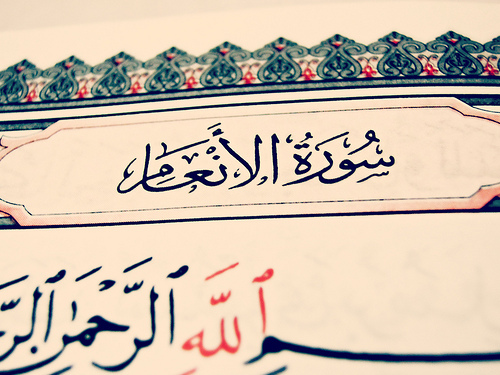 سُورَةُ الأَنْعَام
ـسْمِ ٱللَّهِ ٱلرَّحْمَٰنِ ٱلرَّ